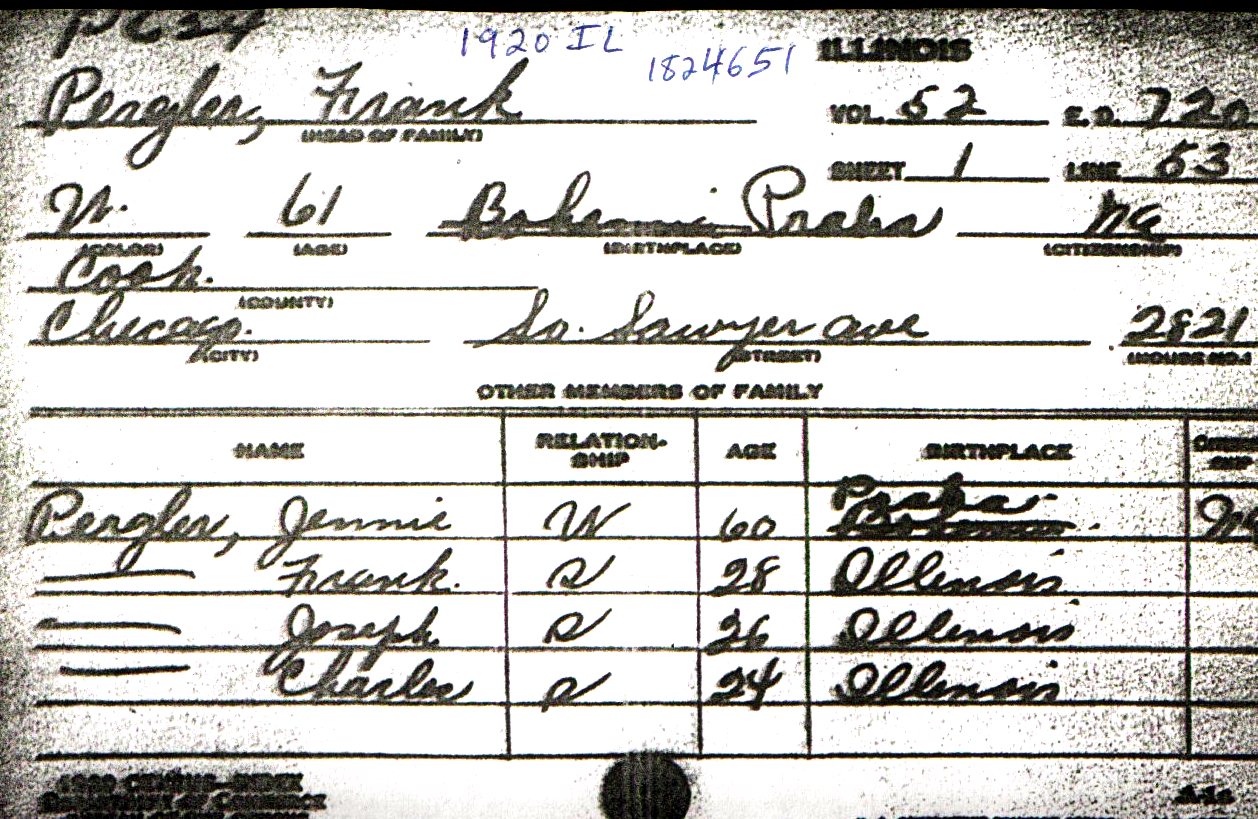 P624
1920 IL
1824651
ILLINOIS
Pergler, Frank
(HEAD OF FAMILY)
VOL. 52 E.D. 720
SHEET 1 LINE 53
W. 61 Bohemia Praha Na
(COLOR) (AGE) (BIRTHPLACE) (CITIZENSHIP)
Cook.
(COUNTY)
Chicago. So. Sawyer ave 2821
(CITY) (STREET) (HOUSE NO.)
OTHER MEMBERS OF FAMILY
NAME RELATION-SHIP AGE BIRTHPLACE
Pergler, Jennie W 60 Praha Bohemia Na
— Frank. S 28 Illinois
— Joseph S 26 Illinois
— Charles S 24 Illinois
1920 CENSUS—INDEX
DEPARTMENT OF COMMERCE